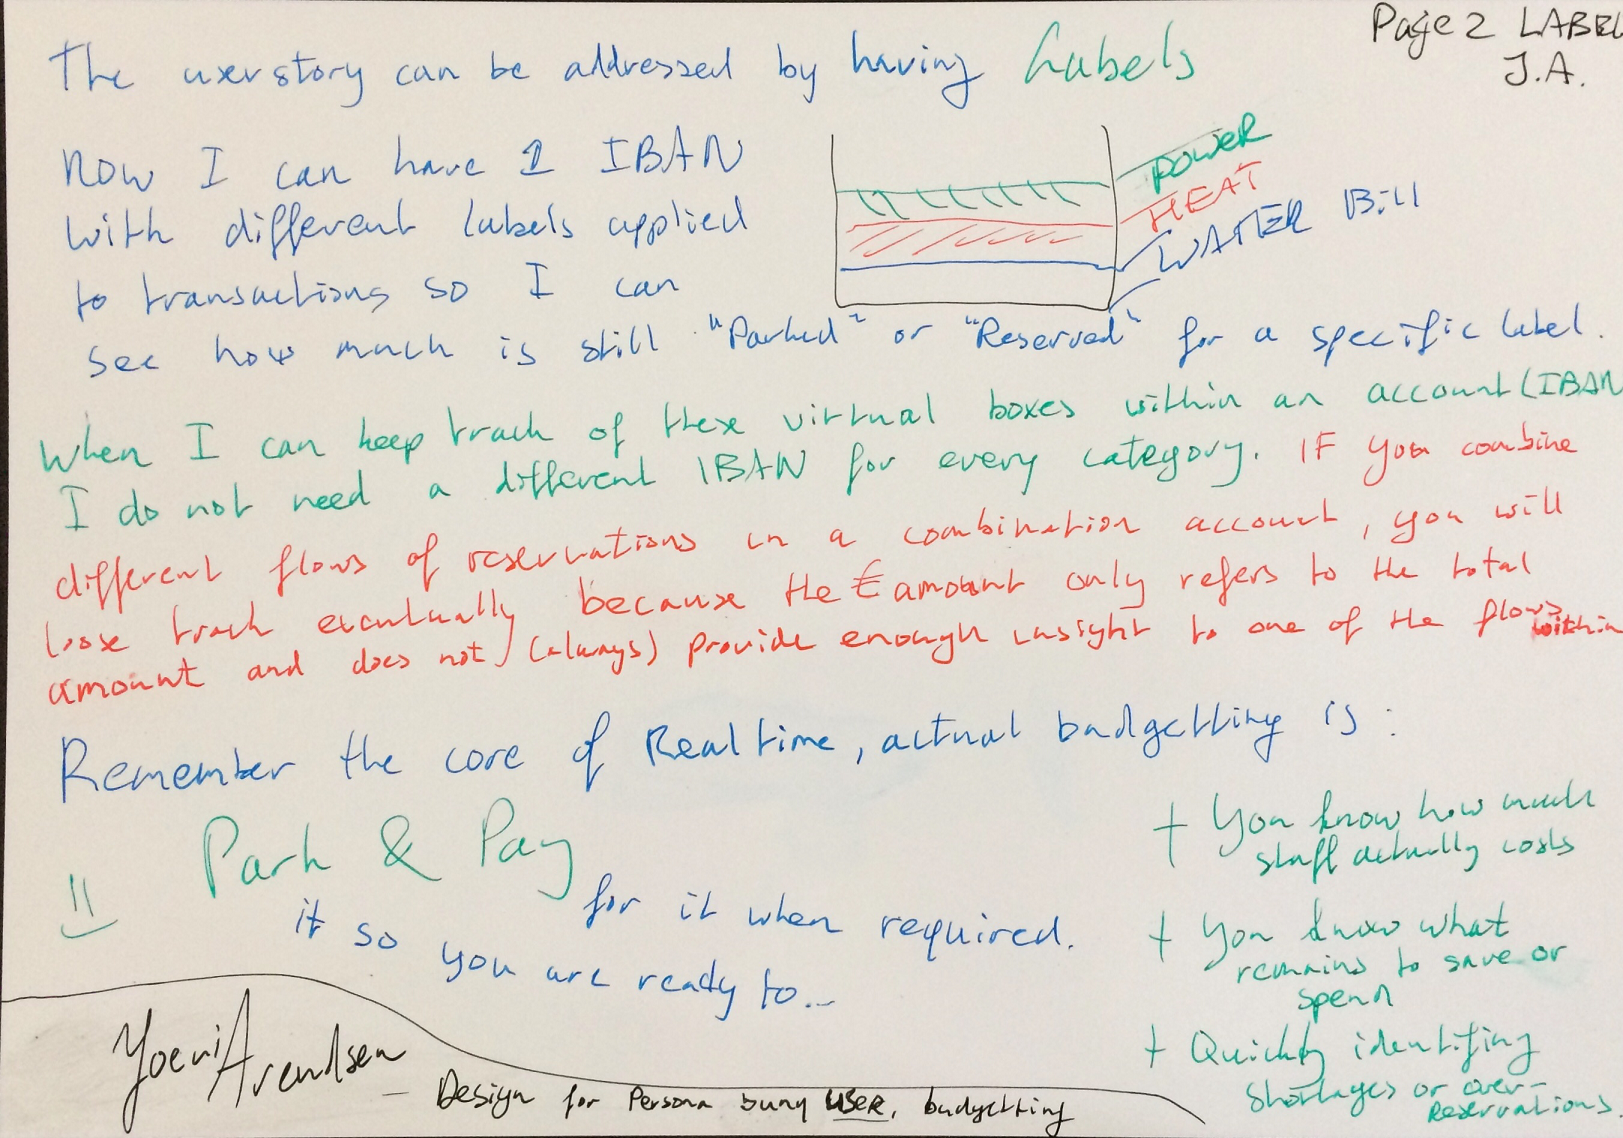 Page 2 LABEL
J.A.
The userstory can be addressed by having Labels
Now I can have 1 IBAN
with different labels applied
to transactions so I can
see how much is still "Parked" or "Reserved" for a specific label.
POWER
HEAT
WATER Bill
When I can keep track of these virtual boxes within an account (IBAN
I do not need a different IBAN for every category. IF you combine
different flows of reservations in a combination account, you will
loose track eventually because the € amount only refers to the total
amount and does not (always) provide enough insight to one of the flows within
Remember the core of Realtime, actual budgetting is:
Park & Pay
it so you are ready to...
for it when required.
+ You know how much
stuff actually costs
+ You know what
remains to save or
spend
+ Quickly identifing
shortages or over-
Reservations.
Arendsen
- Design for Persona bunq USER, budgetting